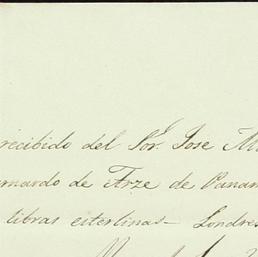 recibido del Sor. Jose M
rnardo de Arze de Panam
libras esterlinas — Londres